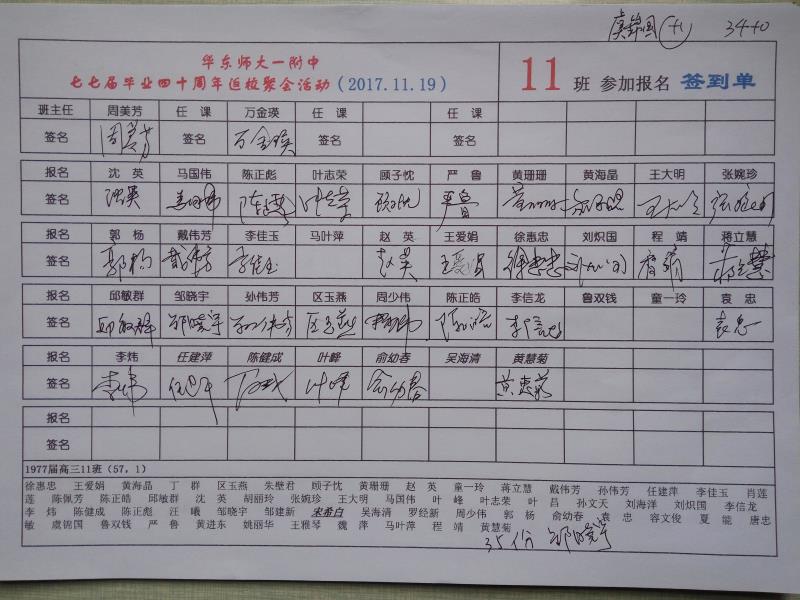 虞锦国 (+1) 34+0
华东师大一附中
七七届毕业四十周年返校聚会活动（2017.11.19）
11 班 参加报名 签到单
班主任 周美芳 任 课 万金瑛 任 课 任 课
签名 周美芳 签名 万金瑛 签名 签名
报名 沈 英 马国伟 陈正彪 叶志荣 顾子忱 严 鲁 黄珊珊 黄海晶 王大明 张婉珍
签名 沈英 马国伟 陈正彪 叶志荣 顾子忱 严鲁 黄珊珊 黄海晶 王大明 张婉珍
报名 郭 杨 戴伟芳 李佳玉 马叶萍 赵 英 王爱娟 徐惠忠 刘炽国 程 靖 蒋立慧
签名 郭杨 戴伟芳 李佳玉 赵英 王爱娟 徐惠忠 刘炽国 程靖 蒋立慧
报名 邱敏群 邹晓宇 孙伟芳 区玉燕 周少伟 陈正皓 李信龙 鲁双钱 童一玲 袁 忠
签名 邱敏群 邹晓宇 孙伟芳 区玉燕 周少伟 陈正皓 李信龙 袁忠
报名 李炜 任建萍 陈健成 叶峰 俞幼春 吴海清 黄慧菊
签名 李炜 任建萍 叶峰 俞幼春 黄惠菊
报名
签名
1977届高三11班（57，1）
徐惠忠 王爱娟 黄海晶 丁 群 区玉燕 朱壁君 顾子忱 黄珊珊 赵 英 童一玲 蒋立慧 戴伟芳 孙伟芳 任建萍 李佳玉 肖莲
莲 陈佩芳 陈正皓 邱敏群 沈 英 胡丽玲 张婉珍 王大明 马国伟 叶 峰 叶志荣 叶 昌 孙文天 刘海洋 刘炽国 李信龙
李 炜 陈健成 陈正彪 汪 曦 邹晓宇 邹建新 宋希白 吴海清 罗经新 周少伟 郭 杨 俞幼春 袁 忠 容文俊 夏 能 唐忠
敏 虞锦国 鲁双钱 严 鲁 黄进东 姚丽华 王雅琴 魏 萍 马叶萍 程 靖 黄慧菊
35份 邹晓宇